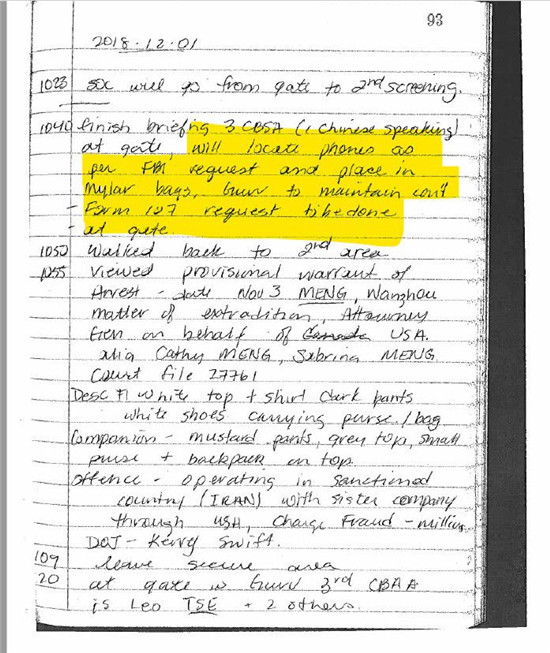 93
2018-12-01
1023 SOC will go from gate to 2nd screening.
1040 finish briefing 3 CBSA (1 Chinese speaking)
at gate, will locate phones as
per FBI request and place in
Mylar bags, to maintain
- Form 127 request to be done
- at gate.
1050 Walked back to 2nd area
1055 Viewed provisional warrant of
Arrest - date Nov 3 MENG, Wanzhou
matter of extradition, Attourney
Gen on behalf of Canada USA.
alia Cathy MENG, Sabrina MENG
Court file 27761
Desc F1 white top + shirt dark pants
white shoes carrying purse/bag
Companion - mustard pants, grey top, small
purse + backpack on top.
offence - operating in sanctioned
country (IRAN) with sister company
through USA, Charge Fraud - millions
DOJ - Kerry Swift.
109 leave secure area
20 at gate 3rd CBAA
is Leo TSE + 2 others.